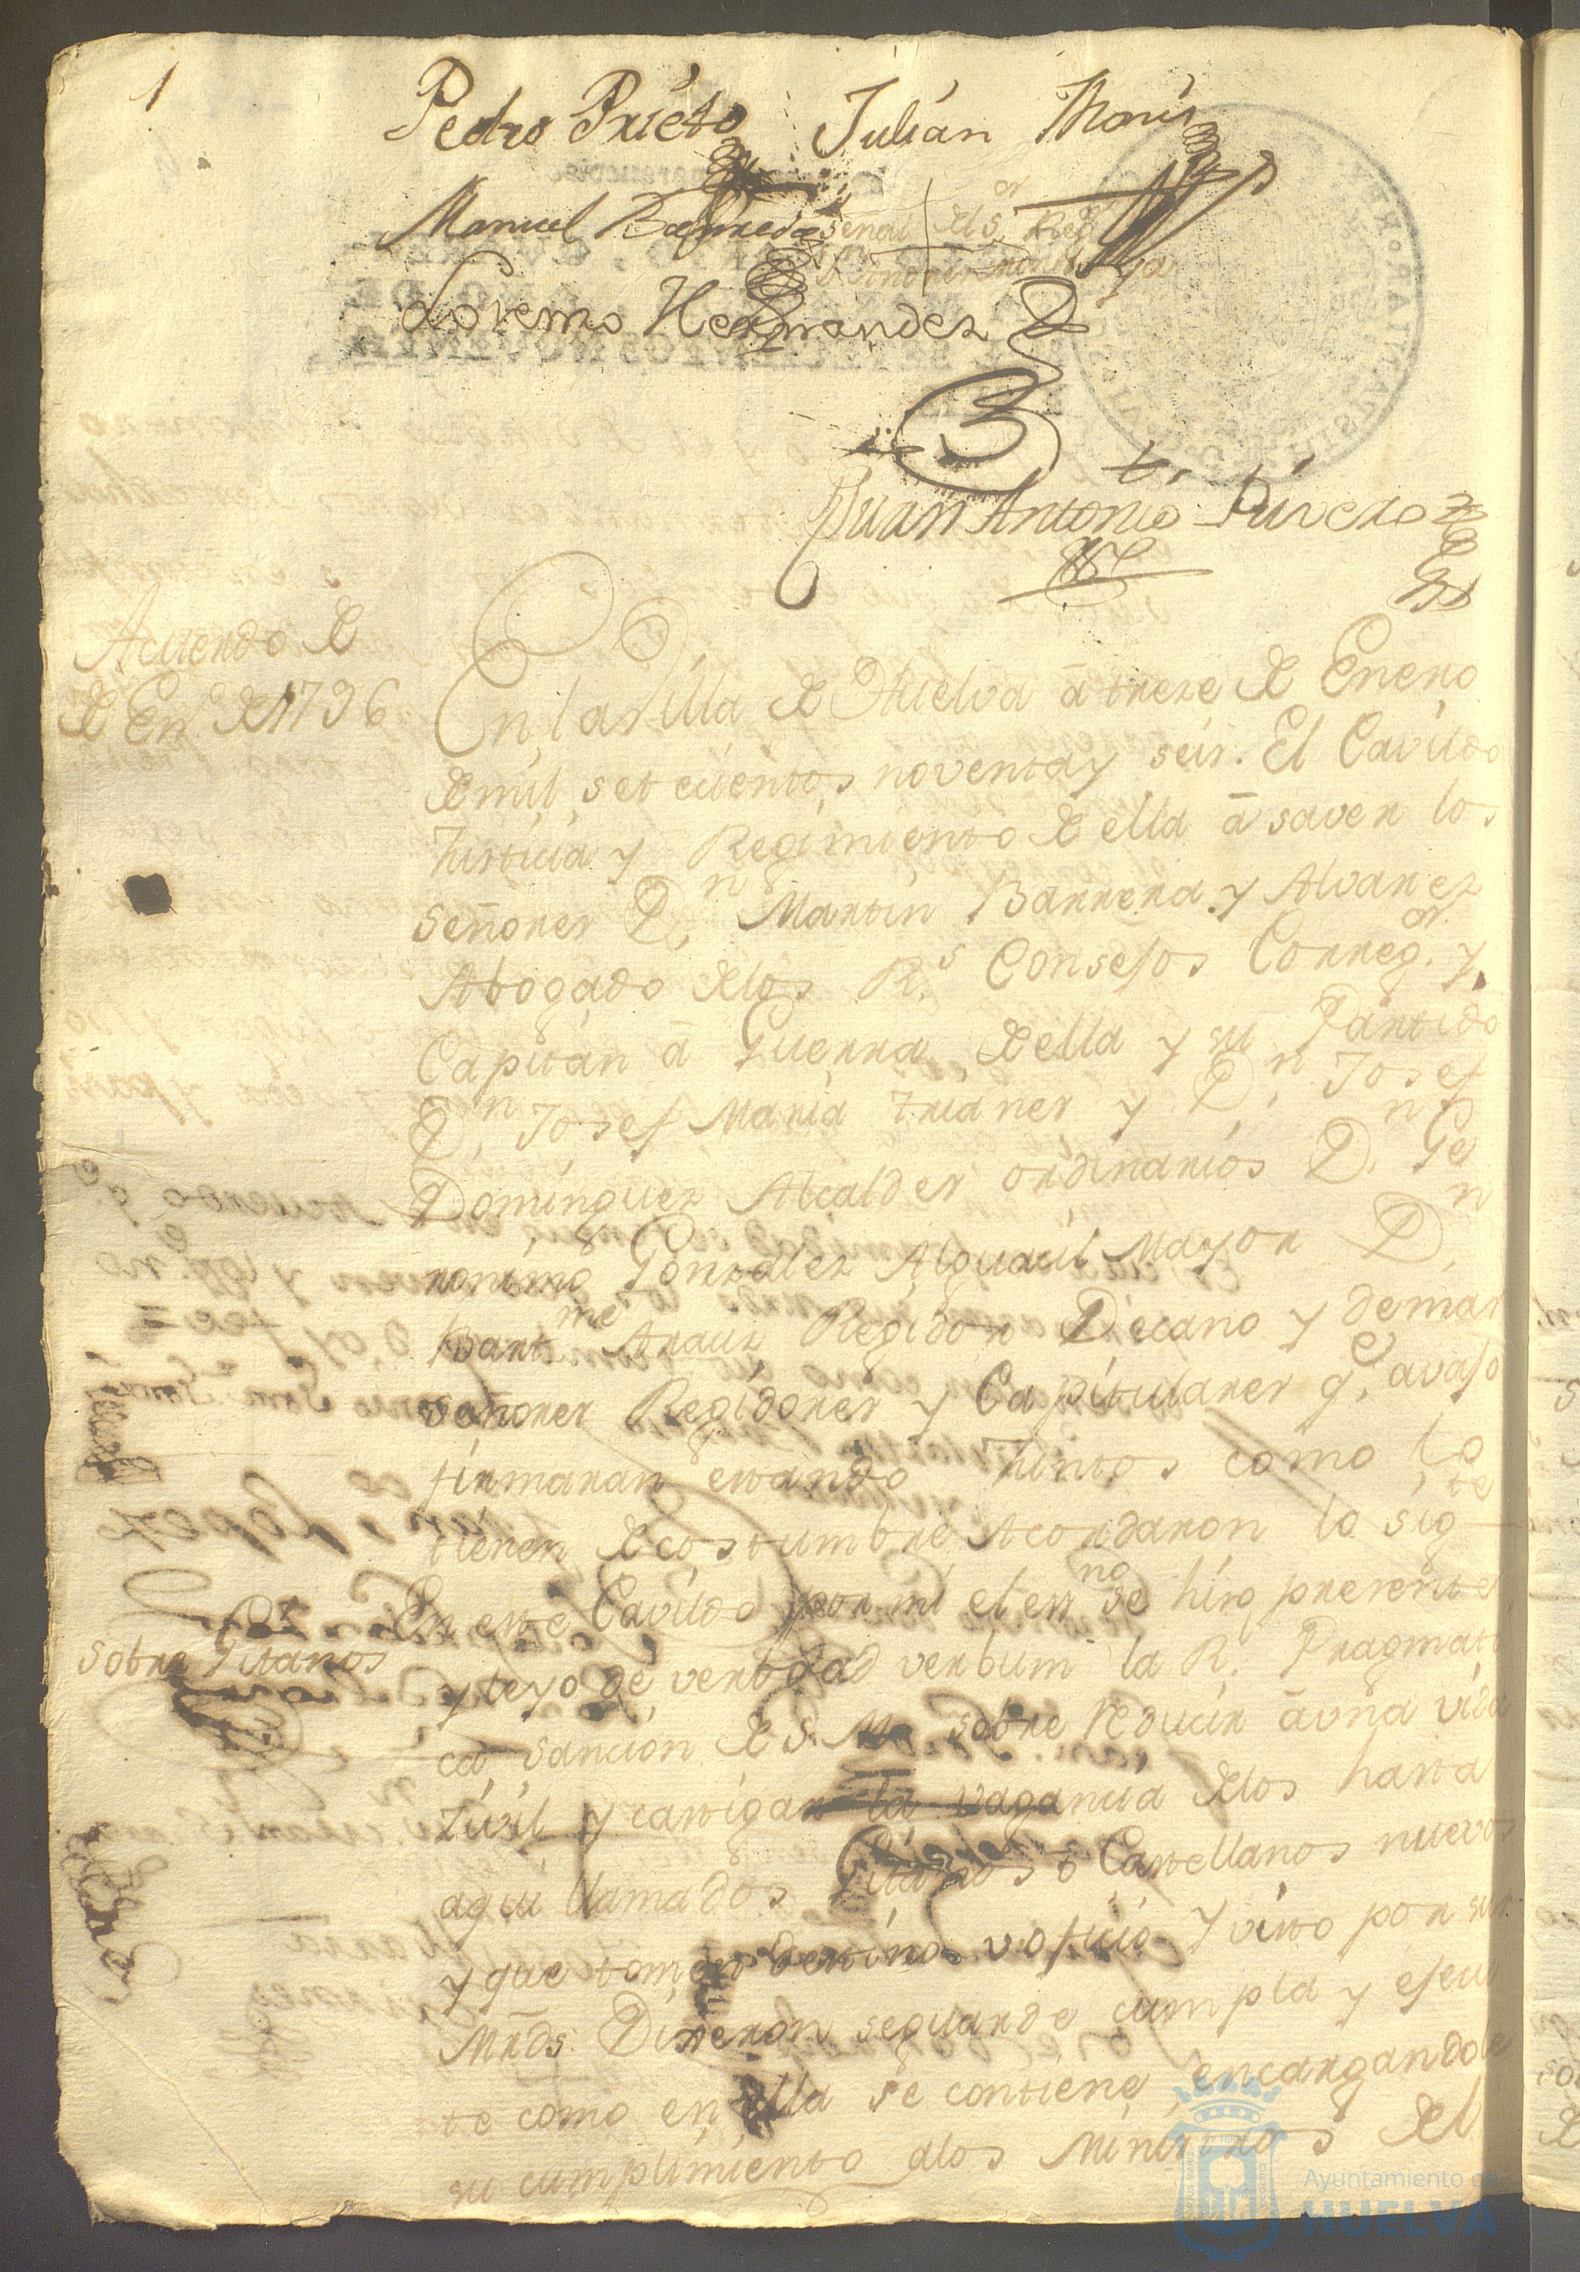 1
Pedro Prieto Julián
Manuel señal del Sr. Regr
Lorenzo Hernandez
Juan Antonio Rivero
Acuerdo de
de Eno. de 1796
En la Villa de Huelva â treze de Enero
de mil setecientos noventa y seis. El Cavildo
Justicia y Regimiento de ella â saver los
señores Dn. Martin Barrera y Alvarez
Abogado delos Rs. Consejos Correg.or y
Capitan â Guerra de ella y su Partido
Dn. Josef Maria Trianes y Dn. Josef
Dominguez Alcaldes ordinarios Dn. Ge
ronimo Gonzalez Alguacil Mayor Dn.
Bartme Arauz Regidor Decano y demas
señores Regidores y Capitulares qe. avajo
firmaran estando Juntos como lo
tienen de costumbre Acordaron lo sigte
sobre Gitanos
En este Cavildo por mi el essno se hizo presente
y leyo de verbo ad verbum la R. Pragmati
ca sancion de S. M. sobre reducir â una vida
Zivil y castigar la vagancia delos hasta
aqui llamados Gitanos ô Castellanos nuevos
y que tomen destino u oficio y visto por sus
Mrds. Dixeron se guarde cumpla y efecu
te como en ella se contiene encargandole
su cumplimiento alos Ministros del
Ayuntamiento de
HUELVA